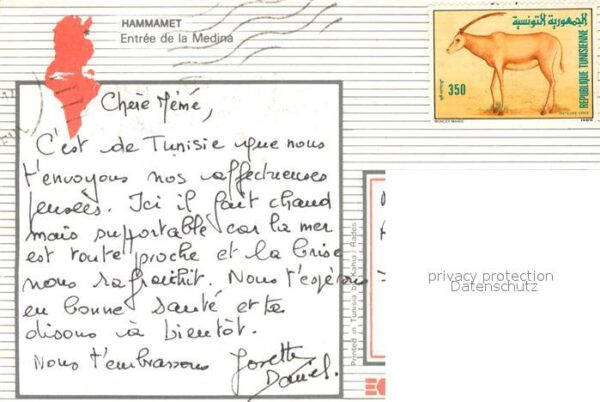 HAMMAMET
Entrée de la Medina
الجمهورية التونسية
REPUBLIQUE TUNISIENNE
350
Chère Mémé,
C'est de Tunisie que nous
t'envoyons nos affectueuses
pensées. Ici il fait chaud
mais supportable car la mer
est toute proche et la brise
nous rafraîchit. Nous t'espérons
en bonne santé et te
disons à bientôt.
Nous t'embrassons Josette
Daniel.
Printed in Tunisia by / Rades
privacy protection
Datenschutz